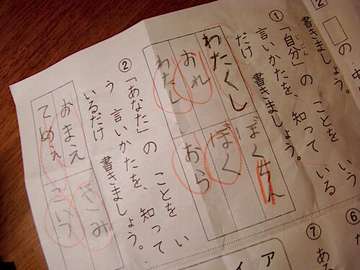 2
□の
書きましょう。
①「自分」の ことを
言いかたを、知って いる
だけ 書きましょう。
わたくし
ぼくちん
おれ
ぼく
わたし
おら
②「あなた」の ことを い
う 言いかたを、知って
いるだけ 書きましょう。
おまえ
きみ
てめえ
こいつ
⑥
⑦
ある
ア